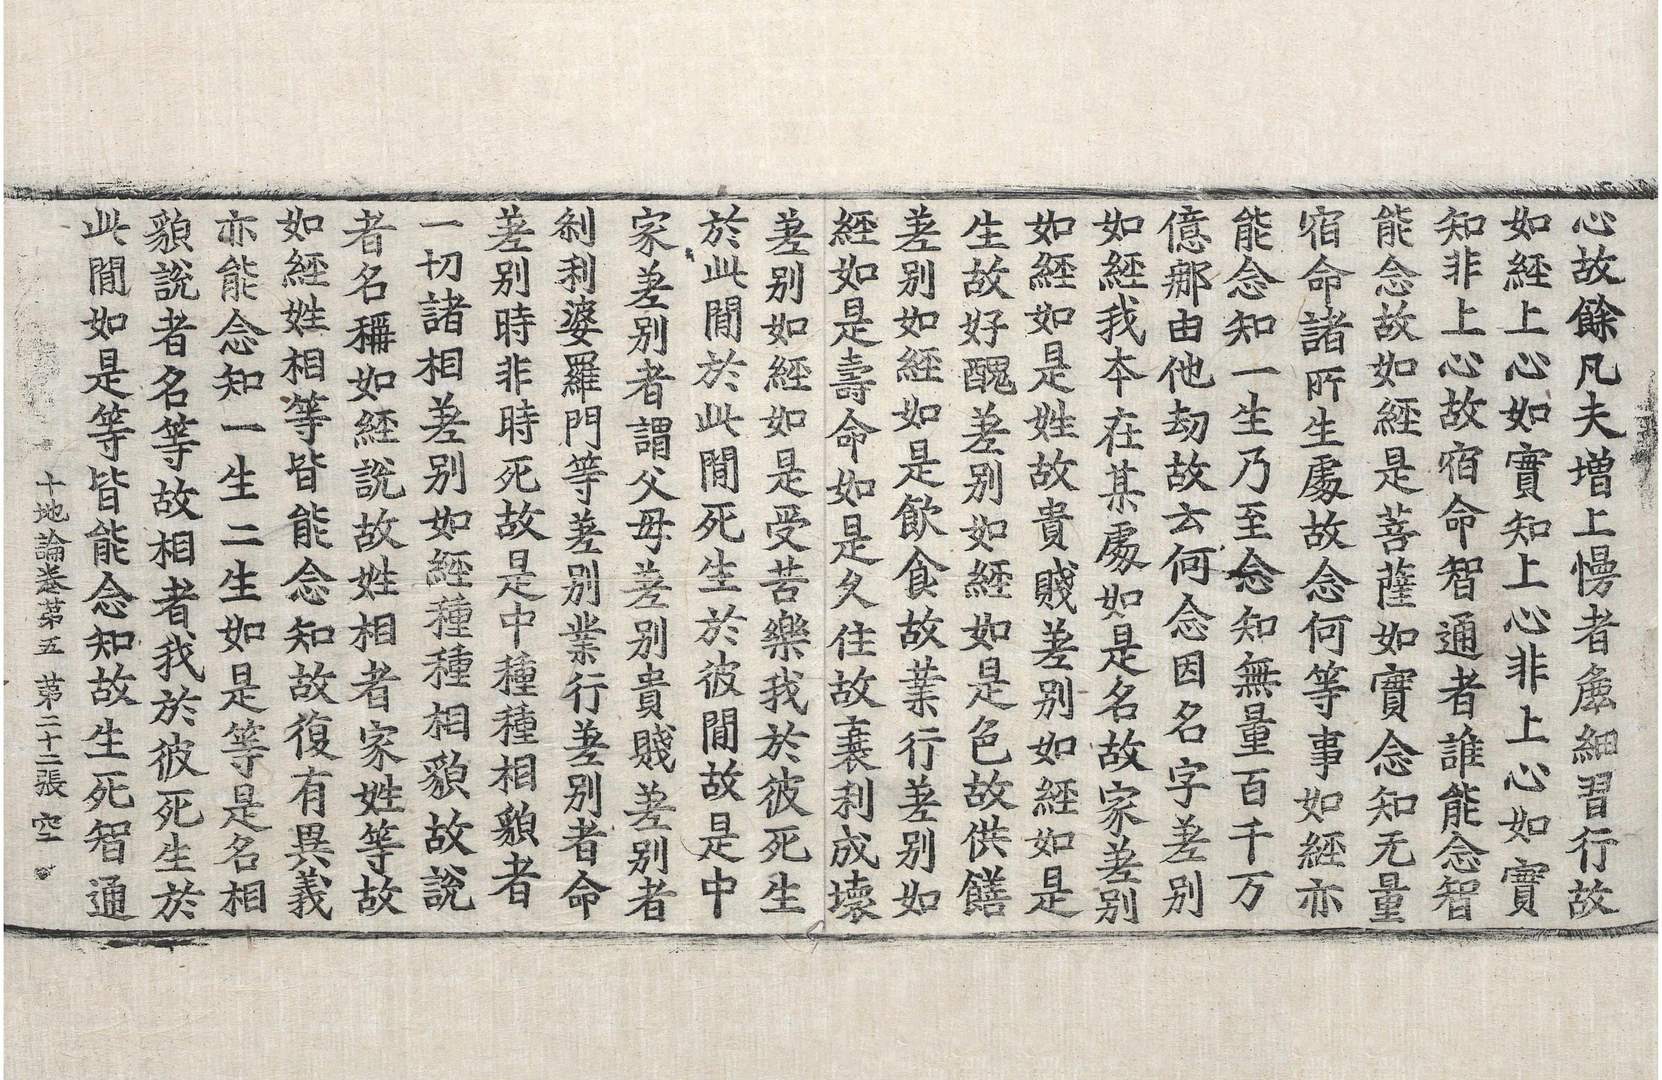 心故餘凡夫增上慢者麁細習行故
如經上心如實知上心非上心如實
知非上心故宿命智通者誰能念智
能念故如經是菩薩如實念知无量
宿命諸所生處故念何等事如經亦
能念知一生乃至念知無量百千万
億那由他劫故云何念因名字差別
如經我本在某處如是名故家差別
如經如是姓故貴賤差別如經如是
生故好醜差別如經如是色故供饍
差別如經如是飲食故業行差別如
經如是壽命如是久住故衰利成壞
差別如經如是受苦樂我於彼死生
於此間於此間死生於彼間故是中
家差別者謂父母差別貴賤差別者
剎利婆羅門等差別業行差別者命
差別時非時死故是中種種相貌者
一切諸相差別如經種種相貌故說
者名稱如經說故姓相者家姓等故
如經姓相等皆能念知故復有異義
亦能念知一生二生如是等是名相
貌說者名等故相者我於彼死生於
此間如是等皆能念知故生死智通
十地論卷第五 第二十二張 空